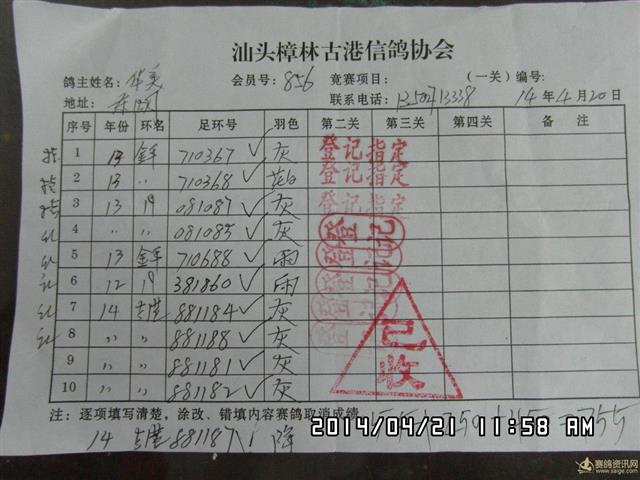 汕头樟林古港信鸽协会
鸽主姓名: 华美 会员号: 856 竞赛项目: (一关) 编号:
地址: 联系电话: 14 年 4 月 20 日
序号 年份 环名 足环号 羽色 第二关 第三关 第四关 备 注
1 13 710367 ✓ 灰 登记指定
2 13 〃 710368 ✓ 登记指定
3 13 19 081087 ✓ 灰 登记指定
4 〃 〃 081085 ✓ 灰 登记
5 13 710688 ✓ 雨 登记
6 12 19 381860 ✓ 雨 登记
7 14 古港 881184 ✓ 灰 登记
8 〃 〃 881188 ✓ 灰 登记
9 〃 〃 881181 ✓ 灰
10 〃 〃 881182 ✓ 灰
已收
注: 逐项填写清楚, 涂改、错填内容赛鸽取消成绩
14 古港 881187
2014/04/21 11:58 AM
赛鸽资讯网
www.saige.com